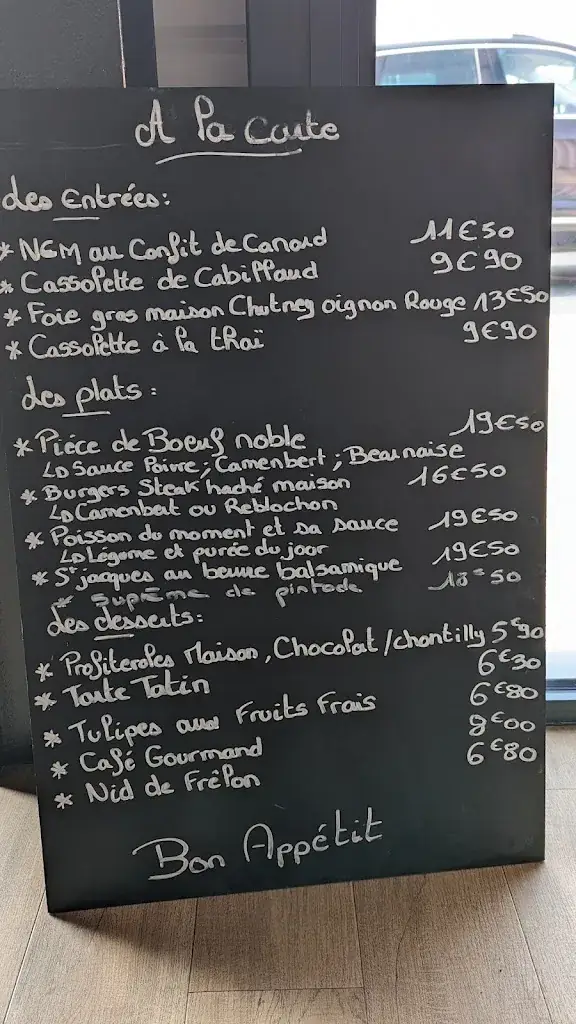 A la Carte
Les Entrées:
* NEM au Confit de Canard 11€50
* Cassolette de Cabillaud 9€90
* Foie gras maison Chutney oignon Rouge 13€50
* Cassolette à la thaï 9€90
Les plats:
* Pièce de Boeuf noble 19€50
Sauce Poivre; Camenbert; Bearnaise
* Burgers Steak haché maison 16€50
Camenbert ou Reblochon
* Poisson du moment et sa sauce 19€50
Légume et purée du jour
* St jacques au beurre balsamique 19€50
* suprême de pintade 18€50
Les desserts:
* Profiteroles Maison, Chocolat/chantilly 5€90
* Tarte Tatin 6€30
* Tulipes aux Fruits Frais 6€80
* Café Gourmand 8€00
* Nid de Frêlon 6€80
Bon Appétit